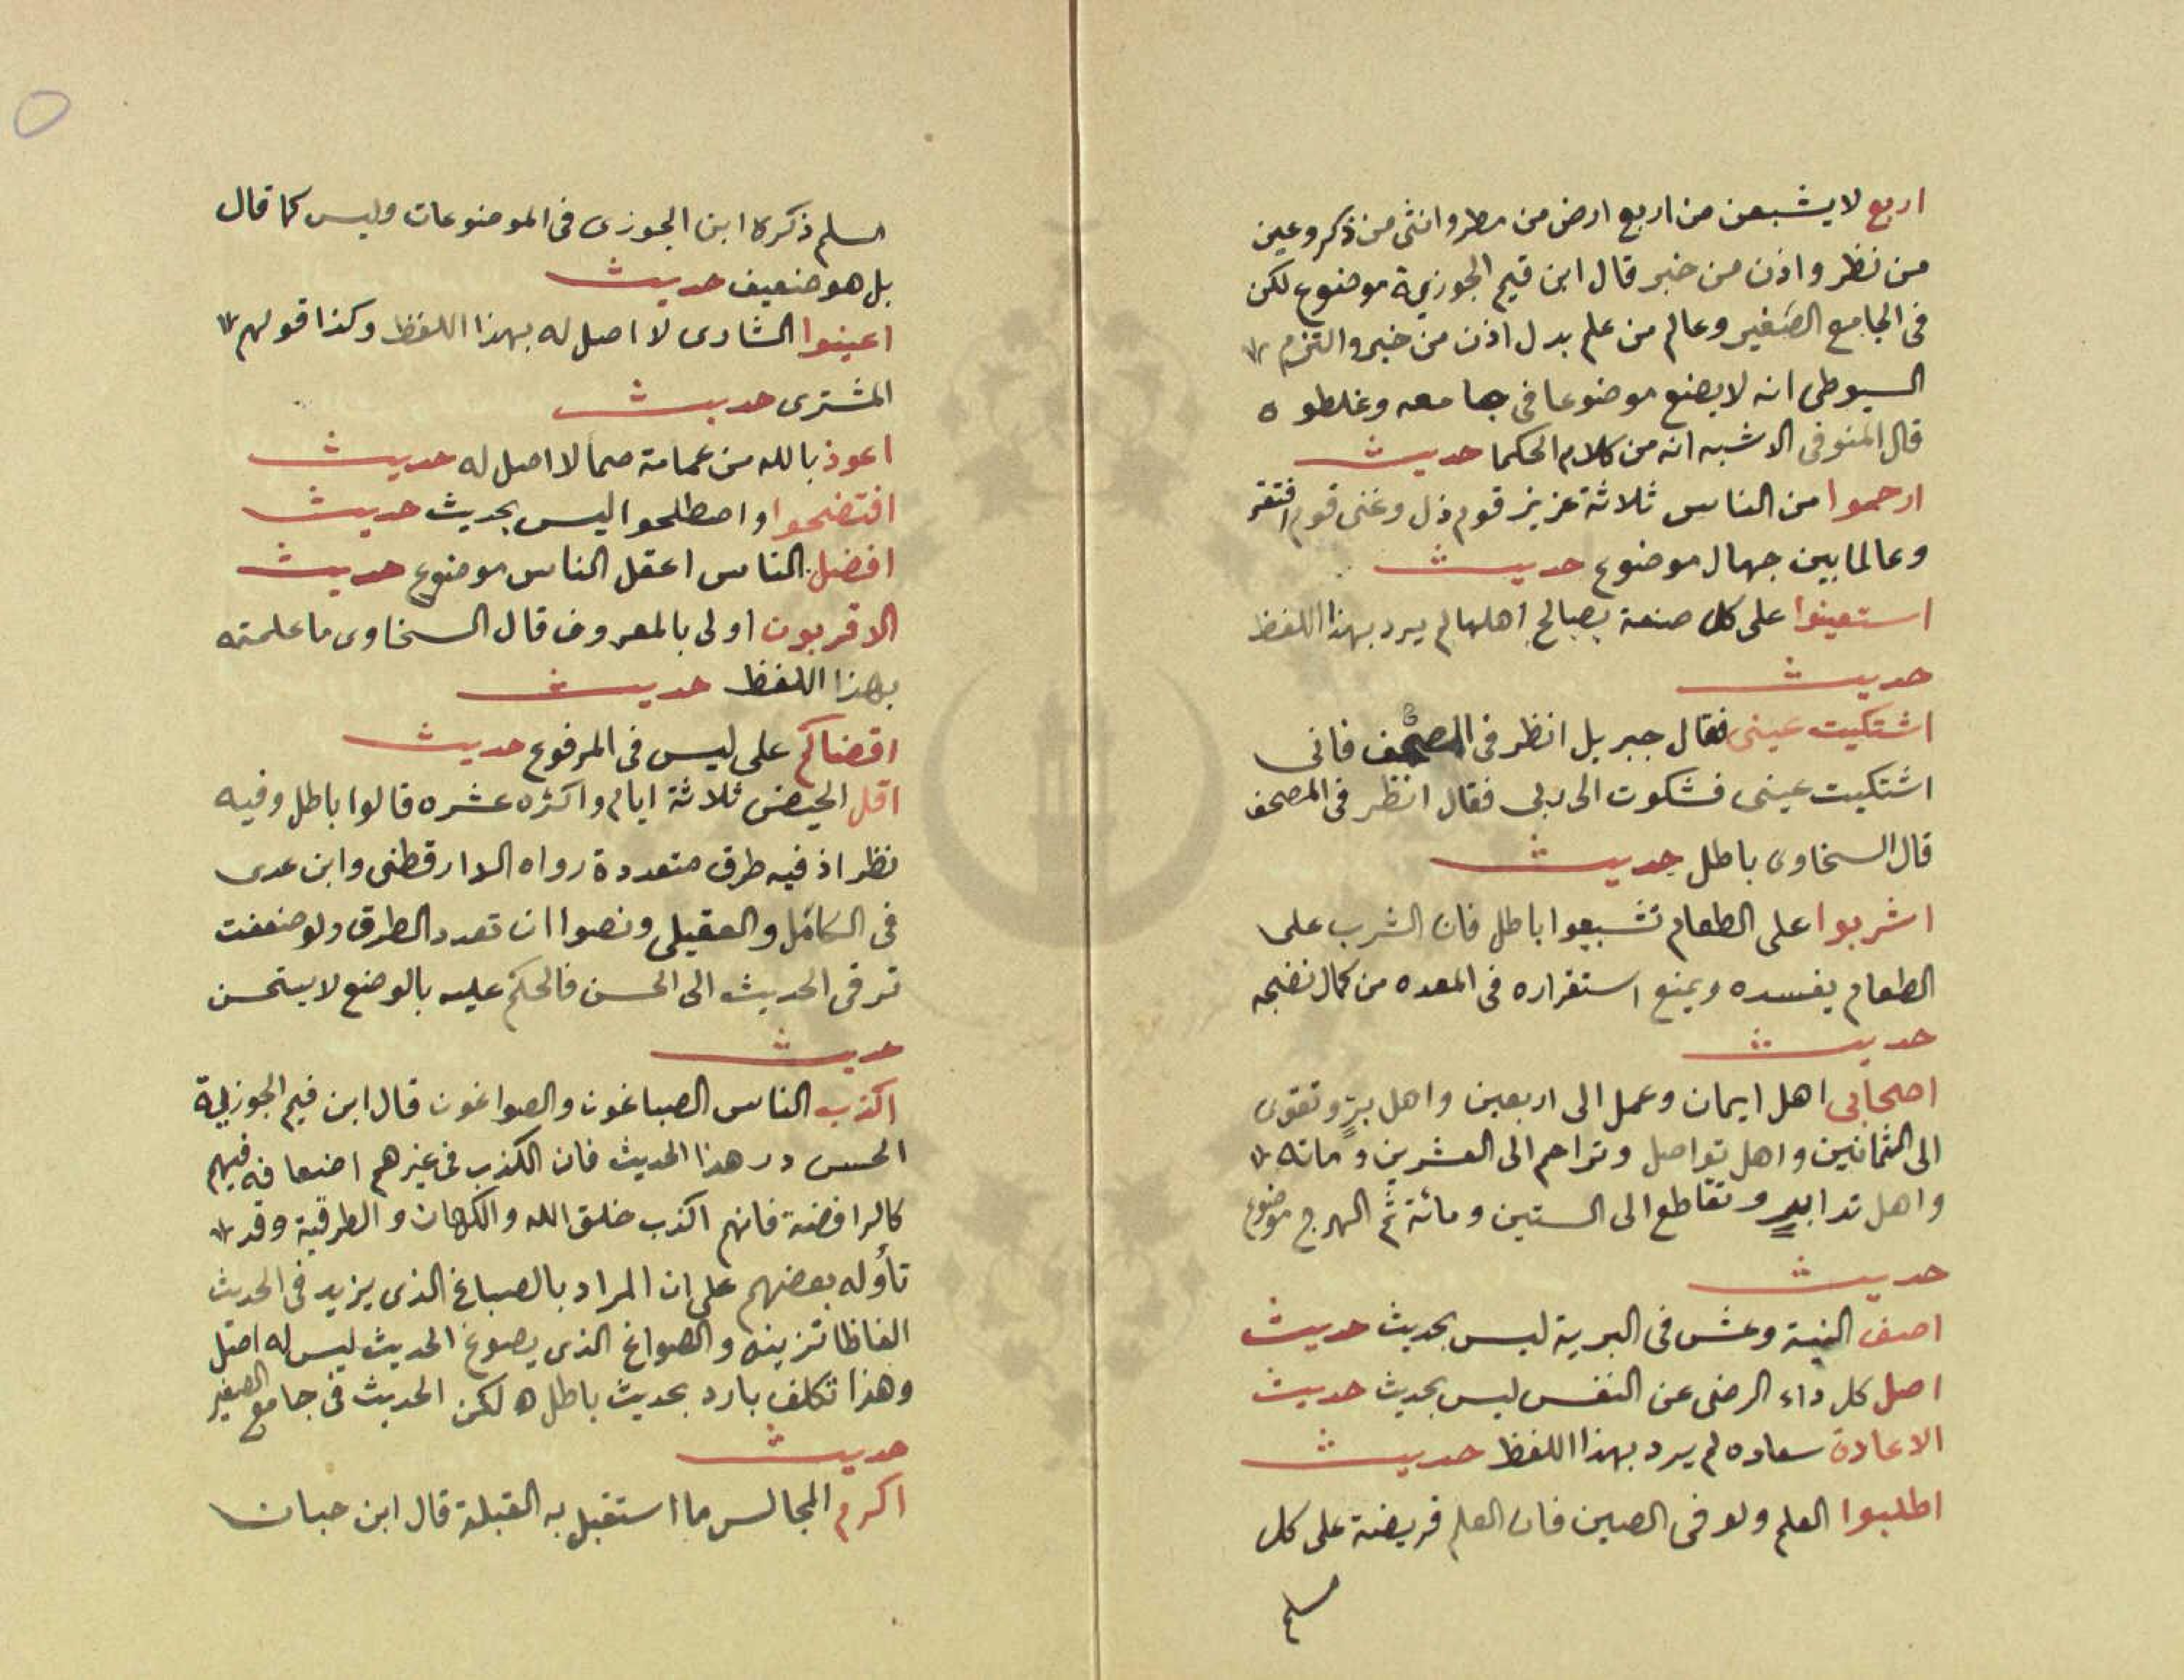 اربع لا يشبعن من اربع ارض من مطر وانثى من ذكر وعين
من نظر واذن من خبر قال ابن قيم الجوزية موضوع لكن
فى الجامع الصغير وعالم من علم بدل اذن من خبر والتزم
السيوطى انه لا يضع موضوعا فى جامعه وغلطوه
قال المنوفى الاشبه انه من كلام الحكما حديث
ارحموا من الناس ثلاثة عزيز قوم ذل وغنى قوم افتقر
وعالما بين جهال موضوع حديث
استعينوا على كل صنعة بصالح اهلها لم يرد بهذا اللفظ
حديث
اشتكيت عينى فقال جبريل انظر فى المصحف فانى
اشتكيت عينى فشكوت الى ربى فقال انظر فى المصحف
قال السخاوى باطل حديث
اشربوا على الطعام تشبعوا باطل فان الشرب على
الطعام يفسده ويمنع استقراره فى المعده من كمال نضجه
حديث
اصحابى اهل ايمان وعمل الى اربعين واهل برٍّ وتقوى
الى الثمانين واهل تواصل وتراحم الى العشرين ومائه
واهل تدابير وتقاطع الى الستين ومائة ثم الهرج موضوع
حديث
اصف النية وعش فى البرية ليس بحديث حديث
اصل كل داء الرضى عن النفس ليس بحديث حديث
الاعادة سعاده لم يرد بهذا اللفظ حديث
اطلبوا العلم ولو فى الصين فان العلم فريضة على كل
مسلم
مسلم ذكره ابن الجوزى فى الموضوعات وليس كما قال
بل هو ضعيف حديث
اعينوا الشارى لا اصل له بهذا اللفظ وكذا قولهم
المشترى حديث
اعوذ بالله من عمامة صما لا اصل له حديث
افتضحوا واصطلحوا ليس بحديث حديث
افضل الناس اعقل الناس موضوع حديث
الاقربون اولى بالمعروف قال السخاوى ما علمته
بهذا اللفظ حديث
اقضاكم على ليس فى المرفوع حديث
اقل الحيض ثلاثة ايام واكثره عشره قالوا باطل وفيه
نظر اذ فيه طرق متعددة رواه الدارقطنى وابن عدى
فى الكامل والعقيلى ونصوا ان تعدد الطرق ولو ضعفت
ترقى الحديث الى الحسن فالحكم عليه بالوضع لا يستحسن
حديث
اكذب الناس الصباغون والصواغون قال ابن قيم الجوزية
الحس درهذا الحديث فان الكذب فى غيرهم اضعافه فيهم
كالرافضة فانهم اكذب خلق الله والكهان والطرقية وقد
تأوله بعضهم على ان المراد بالصباغ الذى يزيد فى الحديث
الفاظا تزينه والصواغ الذى يصوغ الحديث ليس له اصل
وهذا تكلف بارد بحديث باطل ه لكن الحديث فى جامع الصغير
حديث
اكرم المجالس ما استقبل به القبلة قال ابن حبان